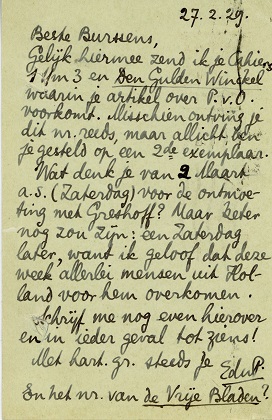 27.2.29.
Beste Burssens,
Gelijk hiermee zend ik je Cahiers
1 t/m 3 en Den Gulden Winckel
waarin je artikel over P.v.O.
voorkomt. Misschien ontving je
dit nr. reeds, maar allicht ben
je gesteld op een 2de exemplaar.
Wat denk je van 2 Maart
a.s. (Zaterdag) voor de ontmoe-
ting met Greshoff? Maar beter
nog zou zijn: een Zaterdag
later, want ik geloof dat deze
week allerlei mensen uit Hol-
land voor hem overkomen.
Schrijf me nog even hierover
en in ieder geval tot ziens!
Met hart. gr. steeds je
EduP.
En het nr. van de Vrije Bladen?